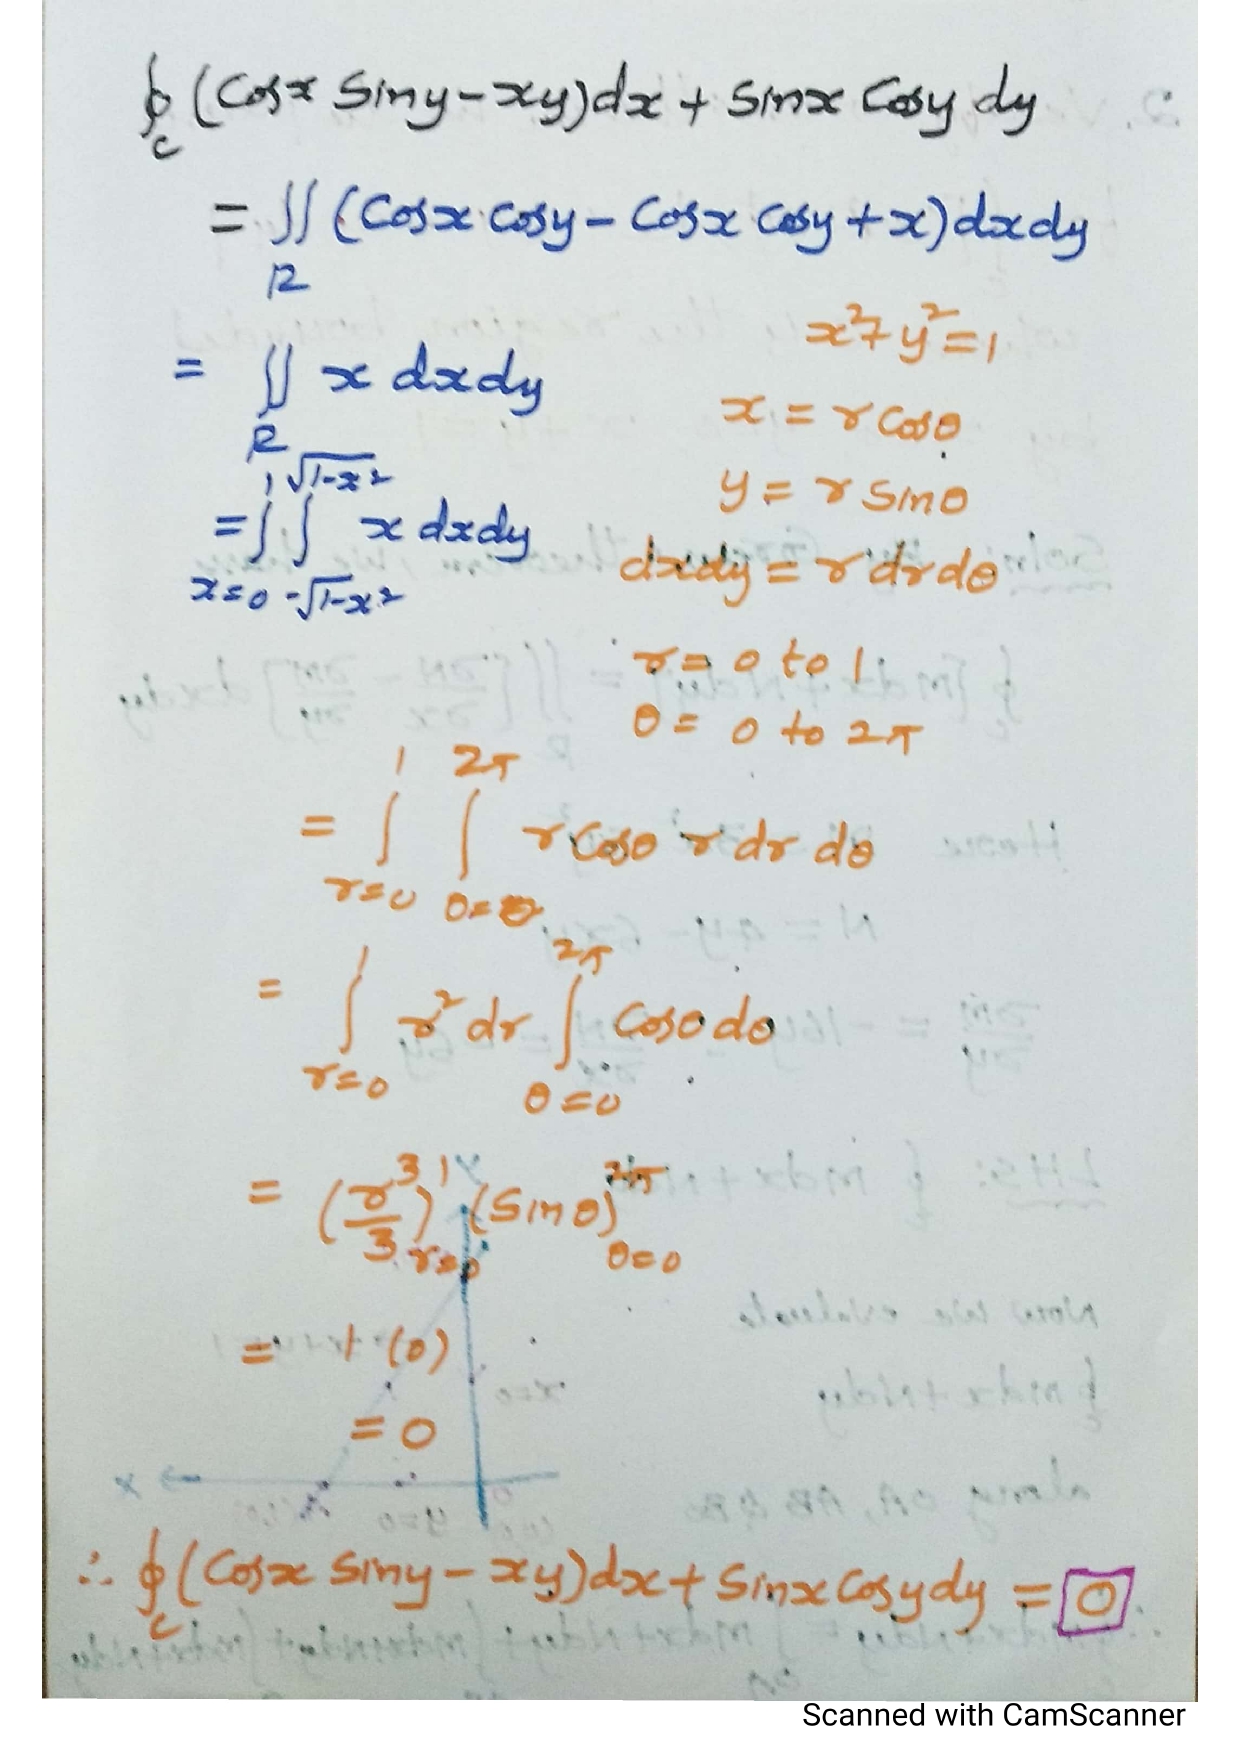 ∮_C (Cosx Siny - xy)dx + Sinx Cosy dy
= ∬_R (Cosx Cosy - Cosx Cosy + x) dxdy
x² + y² = 1
= ∬_R x dxdy
x = r Cosθ
y = r Sinθ
= ∫_{x=0}^{1} ∫_{-√1-x²}^{√1-x²} x dxdy
dxdy = r dr dθ
r = 0 to 1
θ = 0 to 2π
= ∫_{r=0}^{1} ∫_{θ=0}^{2π} r Cosθ r dr dθ
= ∫_{r=0}^{1} r² dr ∫_{θ=0}^{2π} Cosθ dθ
= (r³/3)_{r=0}^{1} (Sinθ)_{θ=0}^{2π}
= 1 (0)
= 0
∴ ∮_C (Cosx Siny - xy)dx + Sinx Cosy dy = 0
Scanned with CamScanner